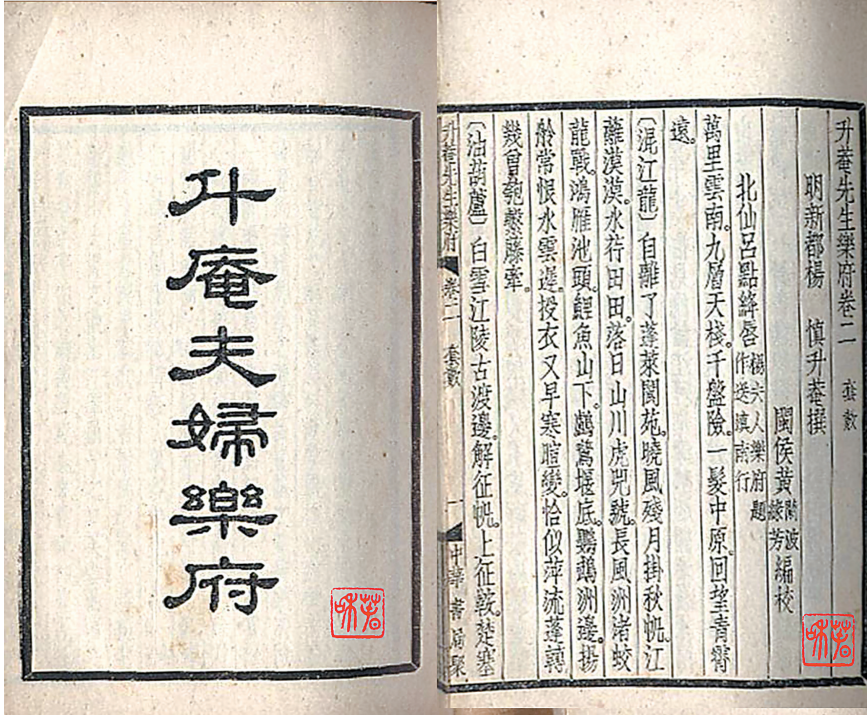 升庵夫婦樂府
升菴先生樂府卷二 套數
明新都楊 慎升菴撰
閩侯黃閬波芳編校
北仙呂點絳唇楊夫人樂府題作送滇南行
萬里雲南。九層天棧。千盤險。一髮中原。回望青霄
遠。
〔混江龍〕自離了蓬萊閬苑。曉風殘月掛秋帆。江
蘺漠漠。水荇田田。落日山川虎兕號。長風洲渚蛟
龍戰。鴻雁池頭。鯉魚山下。鵝鶩堰底。鸚鵡洲邊。揚
舲常恨水雲遲。授衣又早寒暄變。恰似萍流蓬轉
幾曾匏繫藤牽。
〔油葫蘆〕白雪江陵古渡邊。解征帆。上征鞍。楚塞
升菴先生樂府 卷二 套數 一 中華書局聚